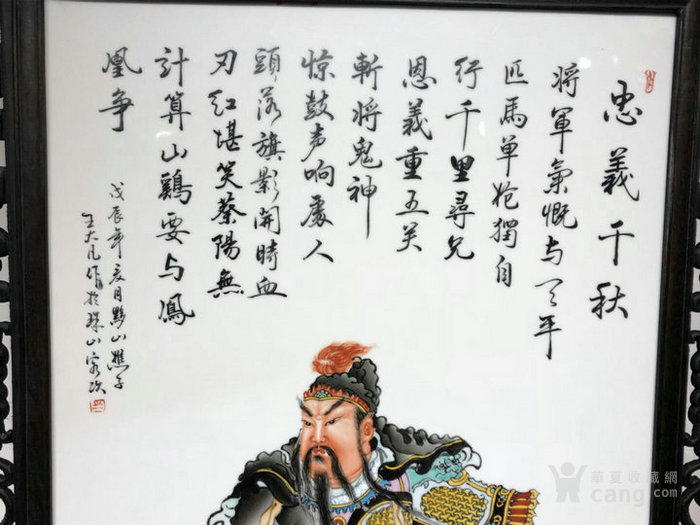 忠義千秋
將軍氣慨与天平
匹馬单枪獨自
行千里尋兄
恩義重五关
斬將鬼神
惊鼓声响處人
頭落旗影開時血
刃红堪笑蔡陽無
計算山鷄要与鳳
凰争
戊辰年亥月黟山樵子
王大凡作於珠山客次
華夏收藏網
cang.com